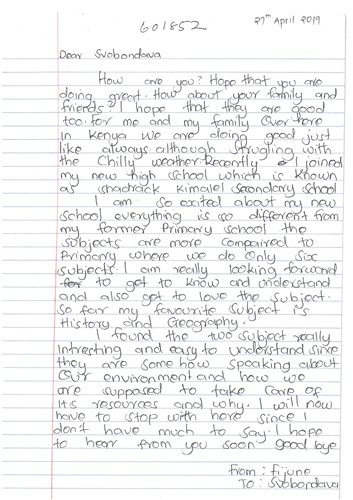 601852
27th April 2019
Dear Svobondava
How are you? Hope that you are
doing great. How about your family and
friends? I hope that they are good
too. For me and my family over here
in Kenya we are doing good just
like always although Strugling with
the Chilly weather. Recently I joined
my new high school which is known
as Shadrack Kimalel Secondary School
I am so excited about my new
School everything is so different from
my former Primary school the
subjects are more compaired to
Primary where we do only six
subjects. I am really looking forward
to get to know and understand
and also get to love the subject.
So far my favourite subject is
History and Geography.
I found the two subject really
Intresting and easy to understand since
they are some how speaking about
our environment and how we
are supposed to take care of
its resources and why. I will now
have to stop with here since I
don't have much to say. I hope
to hear from you soon good bye
From: Fijune
To: Svobondava